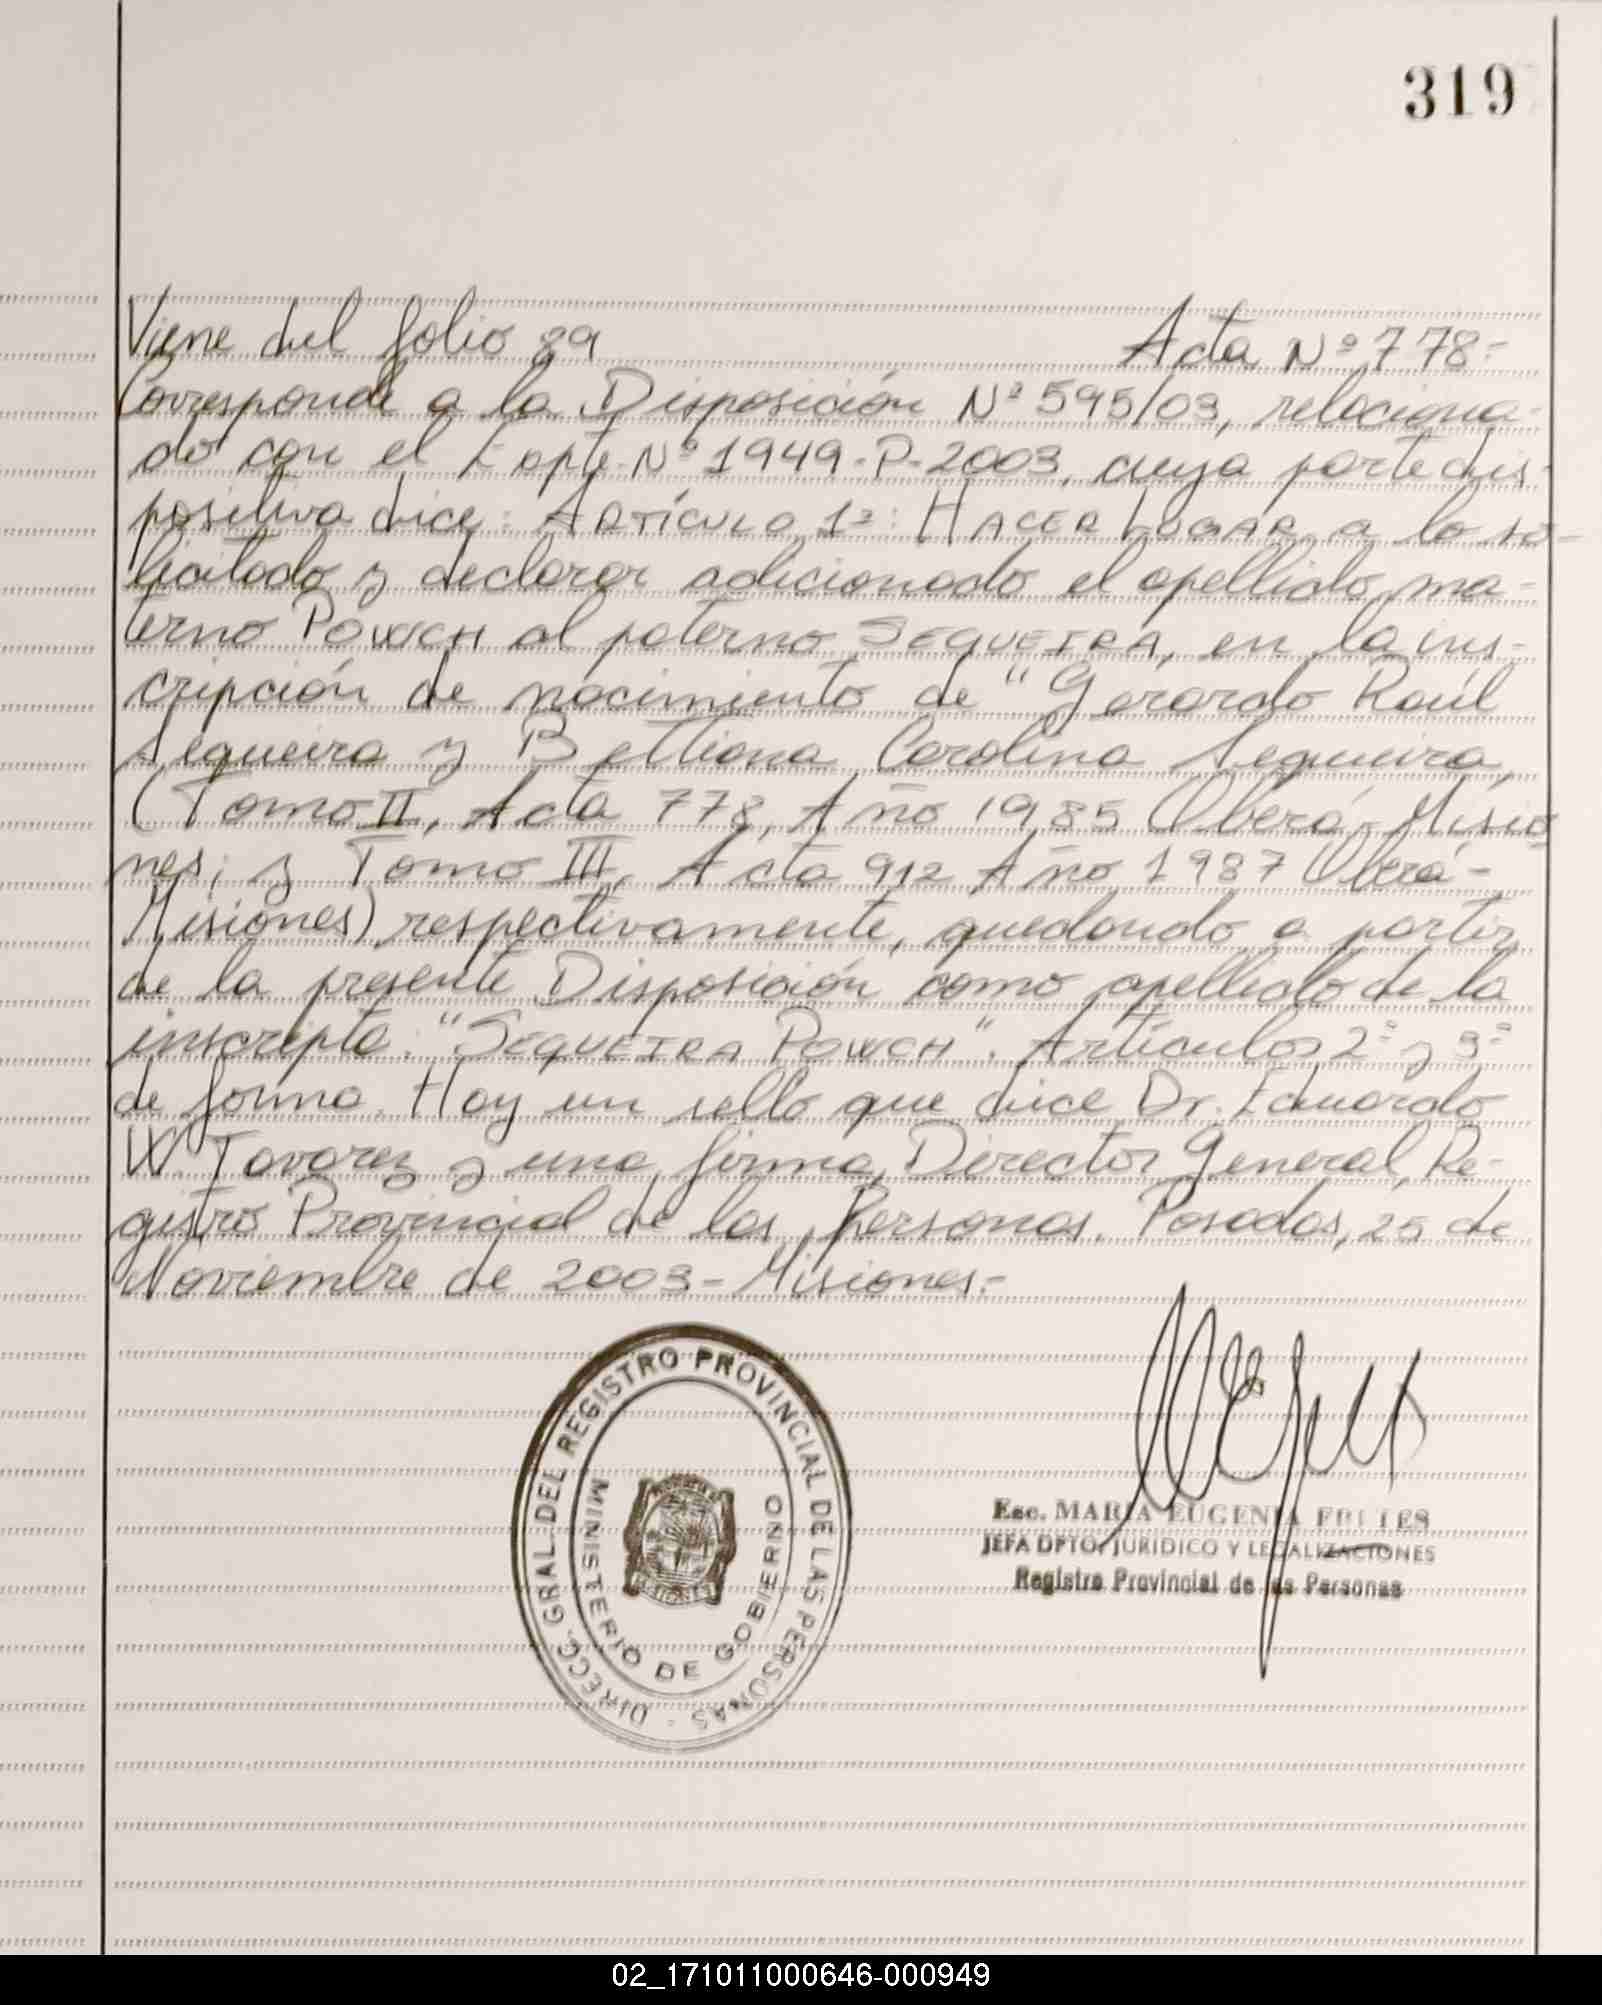 319
Viene del folio 89 Acta Nº 778-
Corresponde a la Disposición Nº 595/03, relaciona-
do con el Expte. Nº 1949-P-2003, cuya parte dis-
positiva dice: ARTÍCULO 1º: HACER LUGAR a lo so-
licitado y declarar adicionado el apellido ma-
terno POWCH al paterno SEQUEIRA, en la ins-
cripción de nacimiento de "Gerardo Raúl
Sequeira y Bettiana Carolina Sequeira,
(Tomo II, Acta 778, Año 1985 Oberá, Misio
nes; y Tomo III, Acta 912 Año 1987 Oberá-
Misiones) respectivamente, quedando a partir
de la presente Disposición como apellido de la
inscripta: "SEQUEIRA POWCH". Artículos 2º y 3º
de forma. Hay un sello que dice Dr. Eduardo
W. Tavarez y una firma, Director General, Re-
gistro Provincial de las Personas. Posadas, 25 de
Noviembre de 2003- Misiones.-
DIRECC. GRAL. DEL REGISTRO PROVINCIAL DE LAS PERSONAS -
MINISTERIO DE GOBIERNO
Esc. MARIA EUGENIA
JEFA DPTO. JURIDICO Y LEGALIZACIONES
Registro Provincial de las Personas
02_171011000646-000949